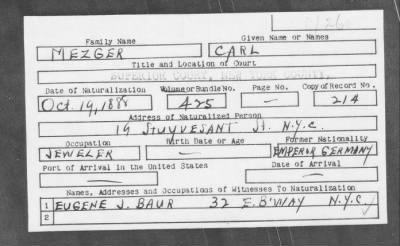 Family Name Given Name or Names
MEZGER CARL
Title and Location of Court
SUPERIOR COURT, NEW YORK COUNTY.
Date of Naturalization Volume or Bundle No. Page No. Copy of Record No.
Oct. 19, 1888 425 — 214
Address of Naturalized Person
19 STUYVESANT St. N.Y.C.
Occupation Birth Date or Age Former Nationality
JEWELER — EMPEROR GERMANY
Port of Arrival in the United States Date of Arrival
— —
Names, Addresses and Occupations of Witnesses To Naturalization
1 EUGENE J. BAUR 32 E. B'WAY N.Y.C.
2